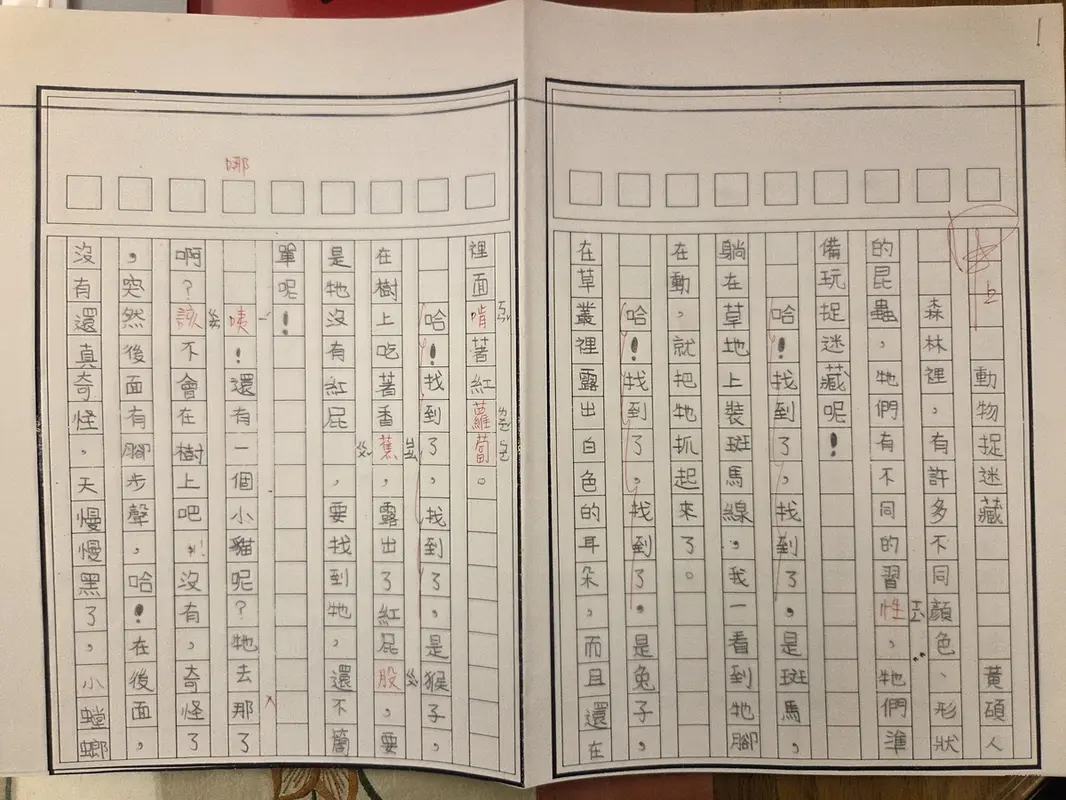 動物捉迷藏 黃碩人
森林裡,有許多不同顏色、形狀
的昆蟲,牠們有不同的習性,牠們準
備玩捉迷藏呢!
哈!找到了,找到了,是斑馬,
躺在草地上裝斑馬線,我一看到牠腳
在動,就把牠抓起來了。
哈!找到了,找到了,是兔子,
在草叢裡露出白色的耳朵,而且還在
裡面啃著紅蘿蔔。
哈!找到了,找到了,是猴子,
在樹上吃著香蕉,露出了紅屁股,要
是牠沒有紅屁,要找到牠,還不簡
單呢!
咦!還有一個小貓呢?牠去那了
啊?該不會在樹上吧!沒有,奇怪了
,突然後面有腳步聲,哈!在後面,
沒有還真奇怪。天慢慢黑了,小螳螂
哪